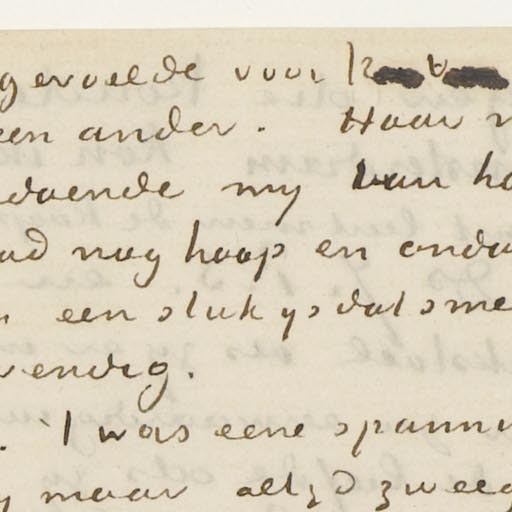 gevoelde voor
een ander. Haar
doende my van
nog hoop en
een stuk ys dat sme
wendig.
't was eene spann
maar altyd zweeg